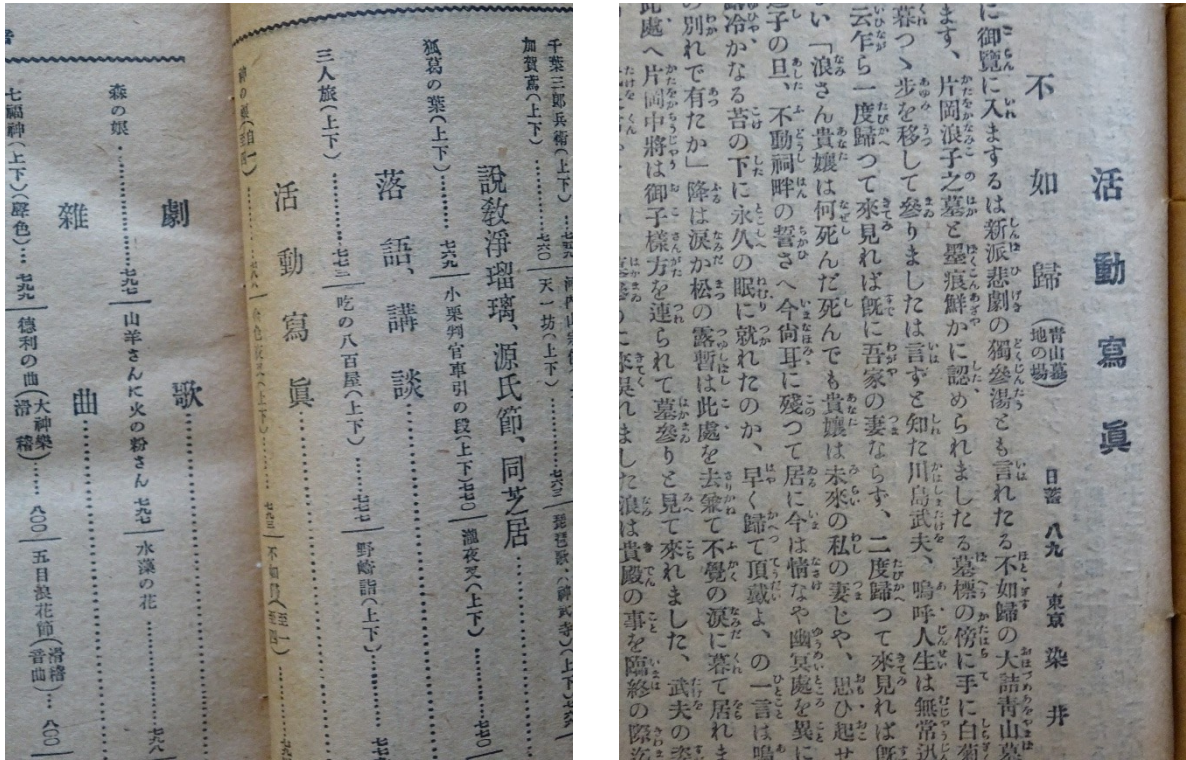 千葉三郎兵衛(上下)
加賀鳶(上下)………天一坊(上下)………
說敎淨瑠璃、源氏節、同芝居…
狐葛の葉(上下)………七六九 小栗判官車引の段(上下)七七〇 瀧夜叉(上下)………七七〇
落語、講談………
三人旅(上下)………七七三 吃の八百屋(上下)………七七七 野崎詣(上下)………
活動寫眞………
劇歌………
森の娘………七九七 山羊さんに火の粉さん 七九七 水藻の花………七九八
雜曲………
七福神(上下)(聲色)…七九九 德利の曲(大神樂滑稽)……八〇〇 五目浪花節(滑稽音曲)…八〇〇
活動寫眞
不如歸(靑山墓地の場) 日蓄 八九 東京 染井
に御覽に入まするは新派悲劇の獨參湯とも言れたる不如歸の大詰靑山墓
ます、片岡浪子之墓と墨痕鮮かに認められましたる墓標の傍に手に白菊
暮つゝ步を移して參りましたは言ずと知た川島武夫、嗚呼人生は無常迅
云乍ら一度歸つて來見れば旣に吾家の妻ならず、二度歸つて來見れば旣
い「浪さん貴孃は何死んだ死んでも貴孃は未來の私の妻じや、思ひ起せ
子の旦、不動祠畔の誓さへ今尙耳に殘つて居に今は情なや幽冥處を異に
冷かなる苔の下に永久の眠に就れたのか、早く歸て頂戴よ、の一言は嗚
の別れで有たか」降は淚か松の露暫は此處を去兼て不覺の淚に暮て居れま
此處へ片岡中將は御子樣方を連られて墓參りと見て來れました、武夫の姿
來吳れました浪は貴殿の事を臨終の際迄